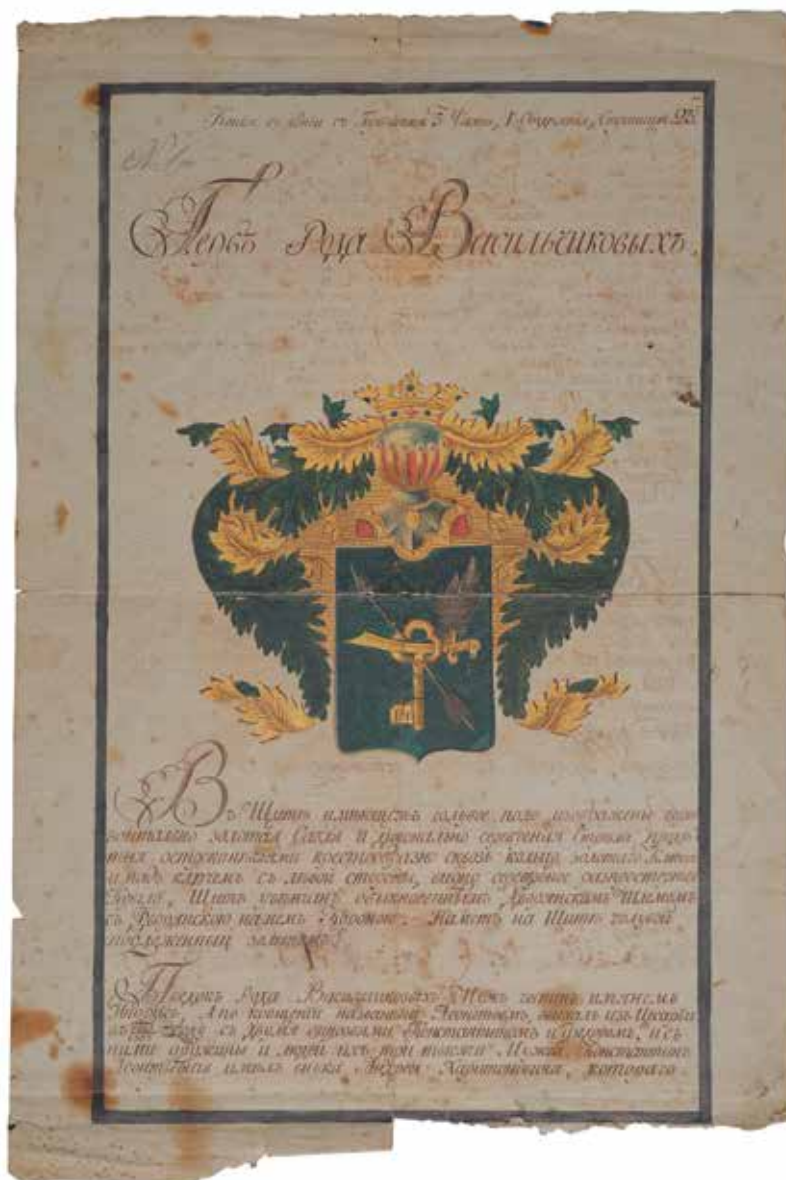 Копия съ копіи съ Гербовника 3 Части, 1 Отдѣленія, Страница 93
№ 1
Гербъ Рода Васильчиковыхъ.
Въ Щитѣ имѣющемъ голубое поле изображены гори-
зонтально золотая Сабля и діагонально серебреная Стрѣла,
остроконечіями крестообразно сквозь кольцо золотаго Ключа
и надъ ключемъ съ лѣвой стороны, видно серебреное
Крыло. Щитъ увѣнчанъ обыкновеннымъ Дворянскимъ Шлемомъ
съ Дворянскою на немъ Короною. Наметъ на Щитѣ голубой
подложенный золотомъ.
Предокъ Рода Васильчиковыхъ Мужъ честнъ имянемъ
А по крещеніи названный Леонтіемъ, выѣхалъ изъ Цесаріи
съ двумя сыновьями Константиномъ и и съ
ними дружины и людей ихъ три тысячи Мужей. Константинъ
Леонтьевъ имѣлъ сына Харитоновича, котораго